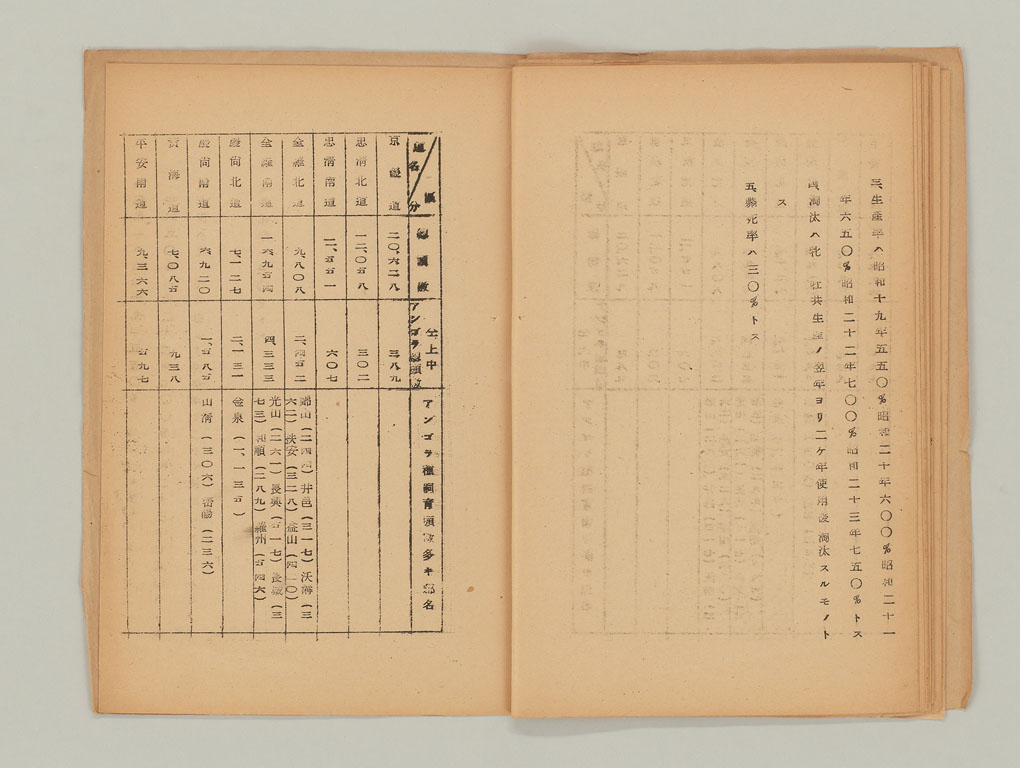 三、生産率ハ昭和十九年五五〇%昭和二十年六〇〇%昭和二十一
年六五〇%昭和二十二年七〇〇%昭和二十三年七五〇%トス
四、淘汰ハ牝、牡共生産ノ翌年ヨリ二ケ年使用後淘汰スルモノト
ス
五、斃死率ハ三〇%トス
道名 区分 総頭数 仝上中アンゴラ総頭数 アンゴラ種飼育頭数多キ郡名
京畿道 二〇、六二八 三、八八九
忠清北道 一二、〇五八 三〇二
忠清南道 一一、五五一 六〇七
全羅北道 九、八〇八 二、四五二 錦山(二四四)井邑(三一七)沃溝(三
六二)扶安(三二八)益山(四一〇)
全羅南道 一六、九五四 四、三三三 光山(二六一)長興(五一七)長城(三
七三)和順(二八九)羅州(五四六)
慶尚北道 七、一二七 二、一三一 金泉(一、一三五)
慶尚南道 六、九二〇 一、五八五 山清(三〇六)密陽(二三六)
黄海道 七、〇八五 九三八
平安南道 九、三六六 五九七